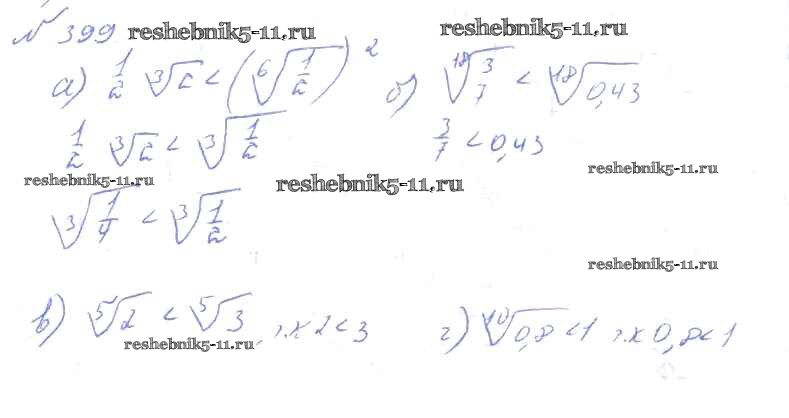 № 399 reshebnik5-11.ru reshebnik5-11.ru
а) 1/2 ∛2 < (⁶√(1/2))² б) ¹⁸√(3/7) < ¹⁸√0,43
1/2 ∛2 < ∛(1/2) 3/7 < 0,43
reshebnik5-11.ru reshebnik5-11.ru reshebnik5-11.ru
∛(1/4) < ∛(1/2)
reshebnik5-11.ru
в) ⁵√2 < ⁵√3, т.к 2 < 3 г) ¹⁰√0,8 < 1 т.к 0,8 < 1
reshebnik5-11.ru